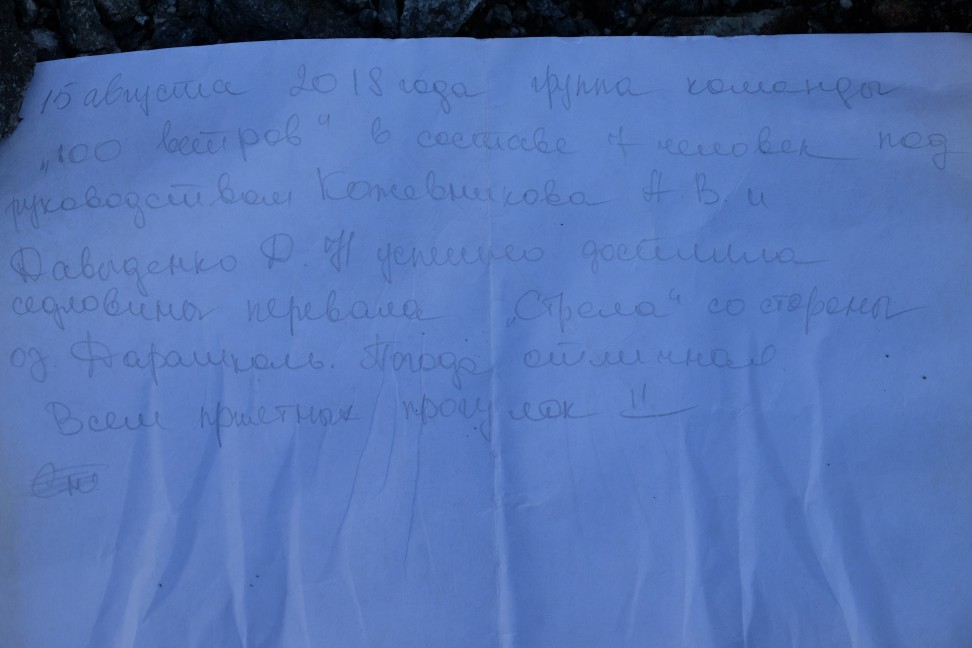 15 августа 2018 года группа команды
„100 ветров“ в составе 7 человек под
руководством Кожевникова А В. и
Давыденко Д. Н успешно достигла
седловины перевала „Стрела“ со стороны
оз. Дарашколь. Погода отличная
Всем приятных прогулок !!